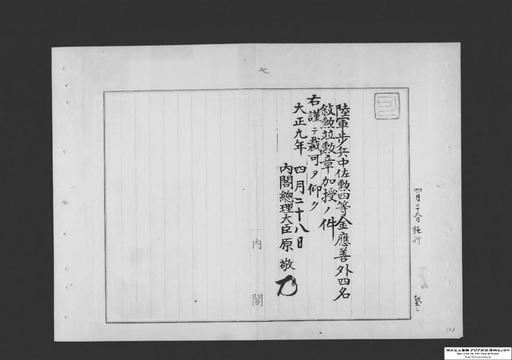 七
四月二十八日施行
陸軍歩兵中佐勲四等金應善外四名
敍勲竝勲章加授ノ件
右謹テ裁可ヲ仰ク
大正九年四月二十八日
内閣總理大臣原敬
内閣